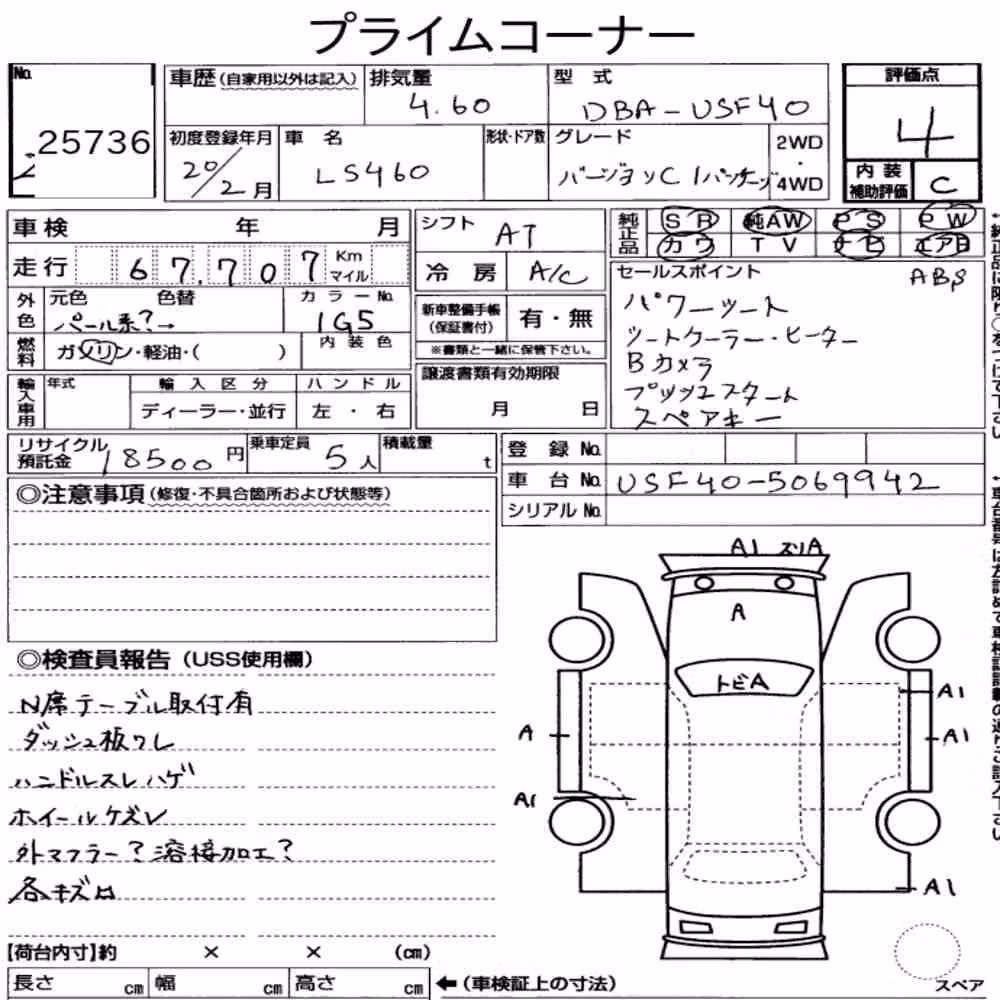 プライムコーナー
No.
25736
車歴 (自家用以外は記入)
排気量
4.60
型式
DBA-USF40
評価点
4
初度登録年月
20/2月
車名
LS460
形状・ドア数
グレード
バージョンC Iパッケージ
2WD
・
4WD
内装
補助評価
C
車検 年 月
シフト
AT
純正品
SR 純AW PS PW
カワ TV ナビ エアB
走行 67,707 Km マイル
冷房 A/C
セールスポイント
ABS
パワーシート
シートクーラー・ヒーター
Bカメラ
プッシュスタート
スペアキー
外色
元色 色替
パール系?→
カラーNo.
1G5
新車整備手帳
(保証書付)
有・無
※書類と一緒に保管下さい。
燃料
ガソリン・軽油・( )
内装色
輸入車用
年式
輸入区分
ディーラー・並行
ハンドル
左・右
譲渡書類有効期限
月 日
リサイクル
預託金 18500円
乗車定員 5人
積載量 t
登録No.
車台No. USF40-5069942
シリアルNo.
◎注意事項 (修復・不具合箇所および状態等)
◎検査員報告 (USS使用欄)
N席テーブル取付有
ダッシュ板ワレ
ハンドルスレハゲ
ホイールケズレ
外マフラー?溶接加工?
各キズ凹
A1 スリA
A
トビA
A
A1
A1
A1
A1
スペア
【荷台内寸】約 × × (cm)
長さ cm 幅 cm 高さ cm
←(車検証上の寸法)